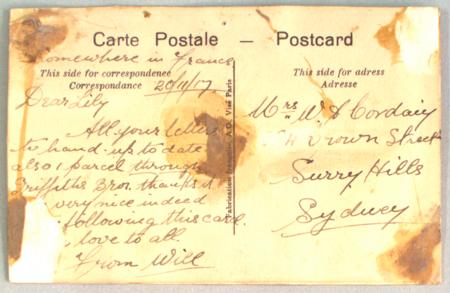 Carte Postale — Postcard
somewhere in France
This side for correspondence
Correspondance
20/11/17
Dear Lily
All your letters
to hand up to date
also 1 parcel through
Griffiths Bros. thanks it
very nice indeed
following this card
love to all.
From Will
This side for adress
Adresse
Mrs W. J. Cordairy
Crown Street
Surry Hills
Sydney
Fabrication Française. A.D. Visé Paris